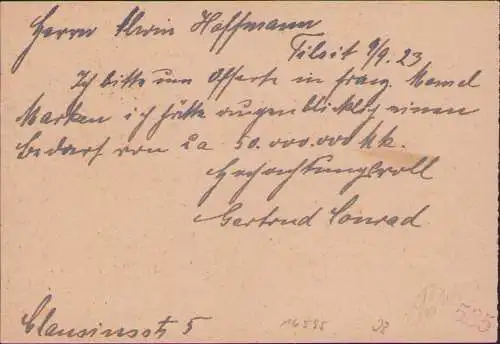 Herrn Alwin Hoffmann
Tilsit 9/9. 23
Ich bitte um Offerte in franz. Memel
Marken ich hätte augenblicklich einen
Bedarf von ca 50.000.000 Mk.
Hochachtungsvoll
Gertrud Conrad
Clausiusstr 5
16595
535